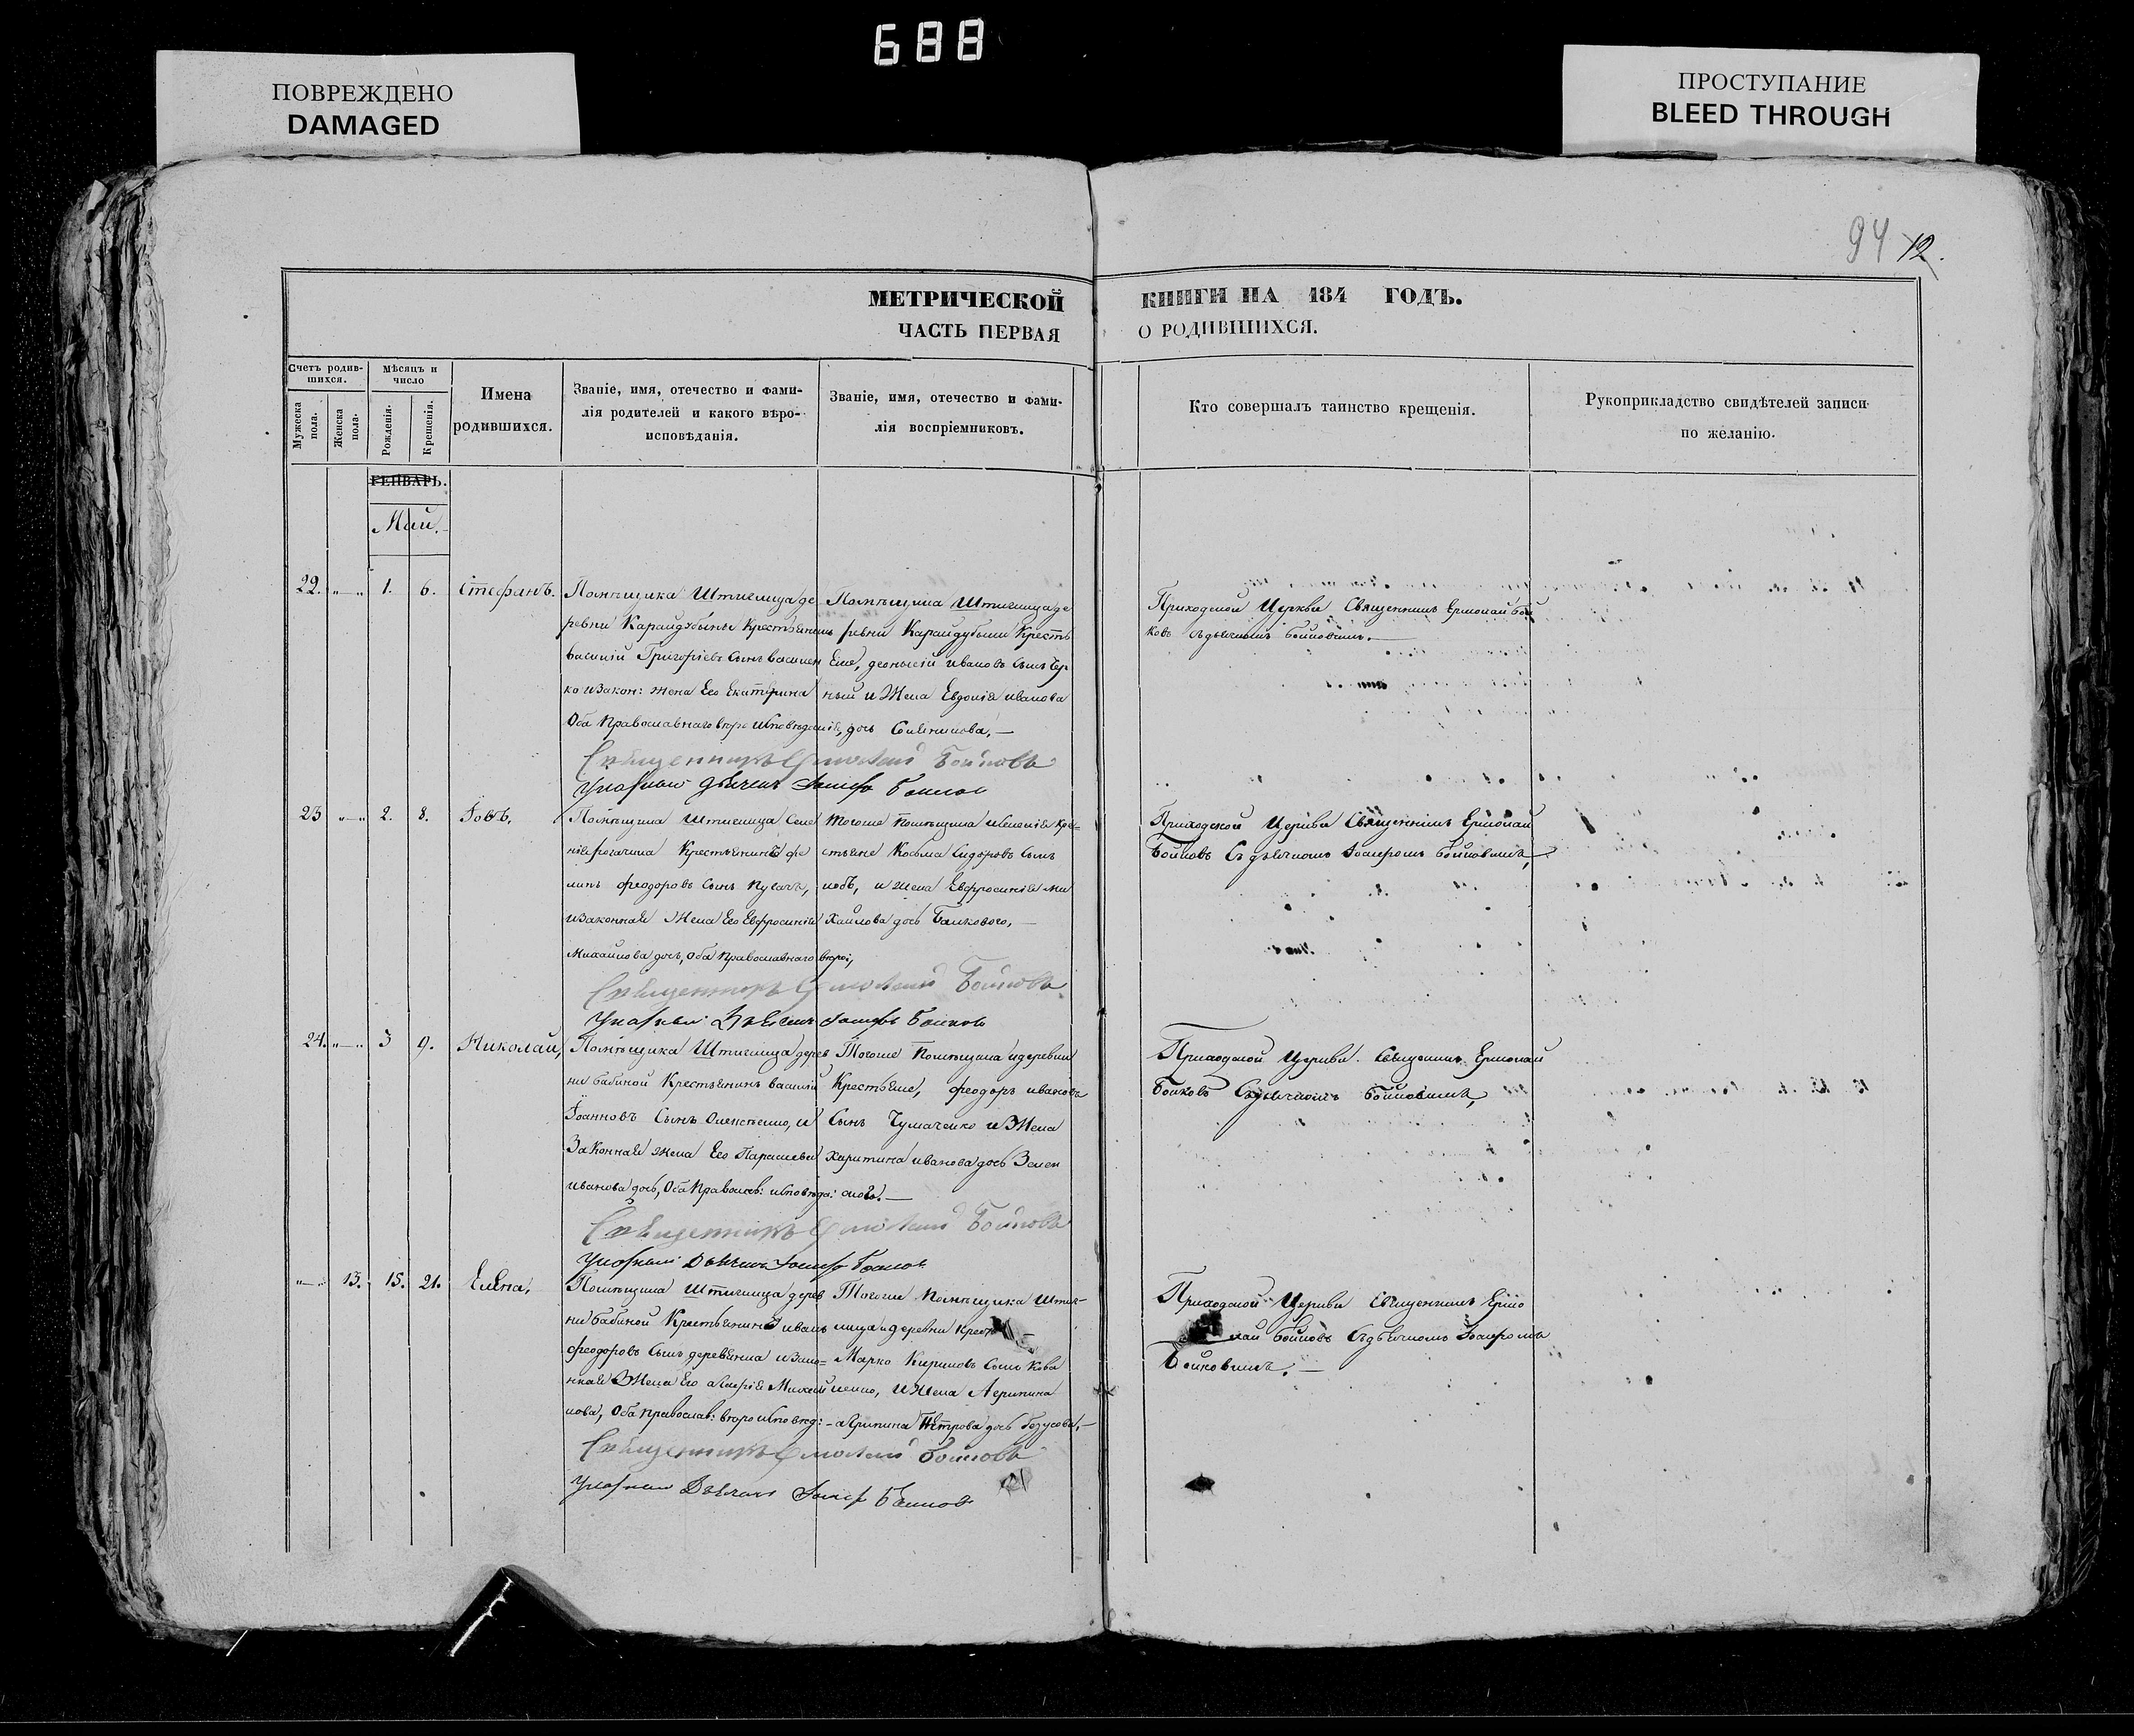 688
ПОВРЕЖДЕНО
DAMAGED
ПРОСТУПАНИЕ
BLEED THROUGH
94 12.
МЕТРИЧЕСКОЙ КНИГИ НА 184 ГОДЪ.
ЧАСТЬ ПЕРВАЯ О РОДИВШИХСЯ.
Счетъ родив-
шихся.
Мужеска
пола.
Женска
пола.
Мѣсяцъ и
число
Рожденія.
Крещенія.
Имена
родившихся.
Званіе, имя, отечество и фами-
лія родителей и какого вѣро-
исповѣданія.
Званіе, имя, отечество и фами-
лія воспріемниковъ.
Кто совершалъ таинство крещенія.
Рукоприкладство свидѣтелей записи
по желанію.
ГЕНВАРЬ.
Май.
22. „—„ 1. 6. Стефанъ.
Помѣщика Штиглица де
ревни Карайдубыны Крестьянинъ
василій Григоріевъ Сынъ василен
ко и Закон: жена Его Екатерина
Оба Православнаго вѣро исповѣданія,
Помѣщика Штиглица де
ревни Карайдубыни Кресть
Еме, деонисій ивановъ Сынъ Чер
ный и Жена Евдокія иванова
дочь
Приходской Церкви Священникъ Ермолай Бой
ковъ съ дьячкомъ Бойковымъ.—
Священникъ Ермолай Бойковъ
Указный дьячекъ Іосифъ Бойков
23 „—„ 2. 8. Іовъ.
Помѣщика Штиглица Селе
нія рогачика Крестьянинъ фи
липъ феодоровъ Сынъ Пугачъ,
и Законная Жена Его Евфросинія
Михайлова дочь, Оба Православнаго вѣрои;
Тогоже Помѣщика и Селенія Кре=
стьяне Козьма Сидоровъ Сынъ
и Жена Евфросинія Ми
хайлова дочь Балкового,—
Приходской Церкви Священникъ Ермолай
Бойковъ Съ дьячкомъ Іосифомъ Бойковымъ,
Священникъ Ермолай Бойковъ
Указный Дьячекъ Іосифъ Бойковъ
24. „—„ 3 9. Николай,
Помѣщика Штиглица дерев
ни бабиной Крестьянинъ василій
Іоанновъ Сынъ Олексѣенко, и
Законная жена Его Параскева
иванова дочь, Оба Православ: исповѣда:
Тогоже Помѣщика и деревни
Крестьяне, феодоръ ивановъ
Сынъ Чумаченко и Жена
Харитина иванова дочь Зелен
Приходской Церкви. Священникъ Ермолай
Бойковъ Съ дьячкомъ Бойковымъ,
Священникъ Ермолай Бойковъ
Указный Дьячекъ Іосифъ Бойков
„—„ 13. 15. 21. Елена,
Помѣщика Штиглица дерев
ни бабиной Крестьянинъ иванъ
феодоровъ Сынъ деревянка и Зако=
нная Жена Его Марія Михай
лова, Оба православ: вѣро исповѣд:
Тогоже Помѣщика Штиг-
лица и деревни Крест
Марко Кириловъ Сынъ Кова
ленко, и Жена Агрипина
агрипина Петрова дочь безусова,—
Приходской Церкви Священникъ Ермо
лай Бойковъ Съ дьячкомъ Іосифомъ
Бойковымъ.—
Священникъ Ермолай Бойковъ
Указный Дьячекъ Іосифъ Бойков